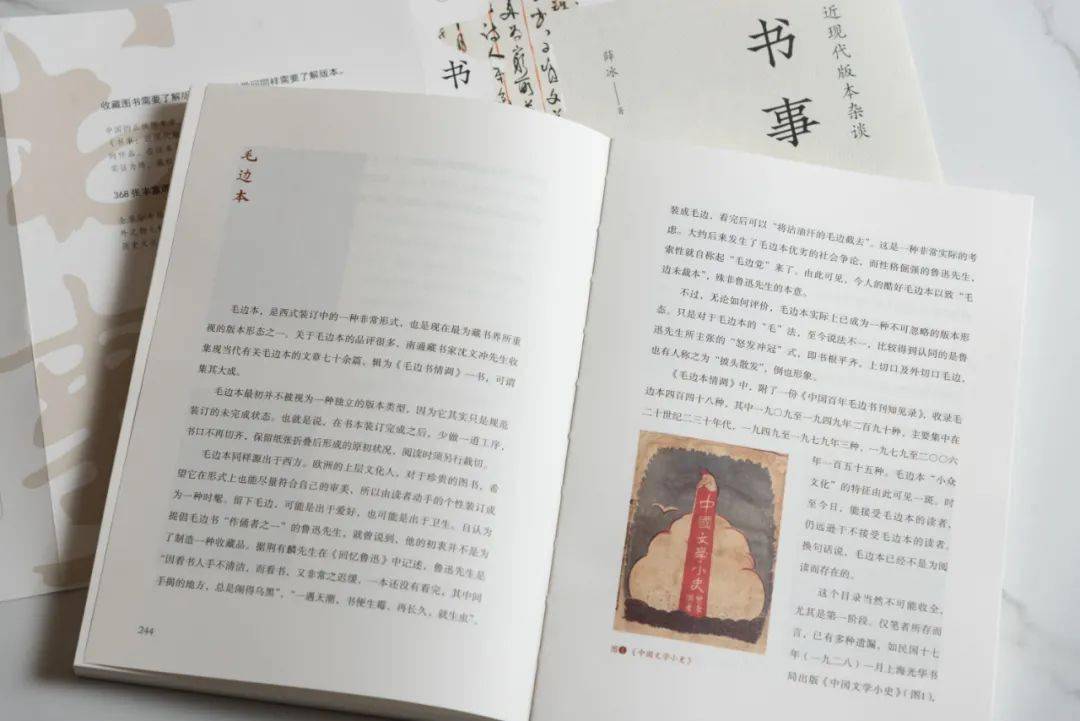 近现代版本杂谈
书
事
薛冰
著
书
收藏图书需要了解版
同样需要了解版本。
368张本
毛边本
毛边本，是西式装订中的一种非常形式，也是现在最为藏书界所重
视的版本形态之一。关于毛边本的品评很多，南通藏书家沈文冲先生收
集现当代有关毛边本的文章七十余篇，辑为《毛边书情调》一书，可谓
集其大成。
毛边本最初并不被视为一种独立的版本类型，因为它其实只是规范
装订的未完成状态。也就是说，在书本装订完成之后，少做一道工序，
书口不再切齐，保留纸张折叠后形成的原初状况，阅读时须另行裁切。
毛边本同样源出于西方。欧洲的上层文化人，对于珍贵的图书，希
望它在形式上也能尽量符合自己的审美，所以由读者动手的个性装订成
为一种时髦。留下毛边，可能是出于爱好，也可能是出于卫生。自认为
提倡毛边书“作俑者之一”的鲁迅先生，就曾说到，他的初衷并不是为
了制造一种收藏品。据荆有麟先生在《回忆鲁迅》中记述，鲁迅先生是
“因看书人手不清洁，而看书，又非常之迟缓，一本还没有看完，其中间
手揭的地方，总是闹得乌黑”，“一遇天潮，书便生霉，再长久，就生虫”。
244
装成毛边，看完后可以“将沾油汗的毛边截去”。这是一种非常实际的考
虑。大约后来发生了毛边本优劣的社会争论，而性格倔强的鲁迅先生，
索性就自称起“毛边党”来了。由此可见，今人的酷好毛边本以致“毛
边未裁本”，殊非鲁迅先生的本意。
不过，无论如何评价，毛边本实际上已成为一种不可忽略的版本形
态。只是对于毛边本的“毛”法，至今说法不一，比较得到认同的是鲁
迅先生所主张的“怒发冲冠”式，即书根平齐，上切口及外切口毛边，
也有人称之为“披头散发”，倒也形象。
《毛边本情调》中，附了一份《中国百年毛边书刊知见录》，收录毛
边本四百四十八种，其中一九〇九至一九四九年二百九十种，主要集中在
二十世纪二三十年代，一九四九至一九七九年三种，一九七九至二〇〇六
年一百五十五种。毛边本“小众
文化”的特征由此可见一斑。时
至今日，能接受毛边本的读者，
仍远逊于不接受毛边本的读者。
换句话说，毛边本已经不是为阅
读而存在的。
这个目录当然不可能收全，
尤其是第一阶段。仅笔者所存而
言，已有多种遗漏。如民国十七
年（一九二八）一月上海光华书
局出版《中国文学小史》（图1），
中國文学小史
图1《中國文学小史》